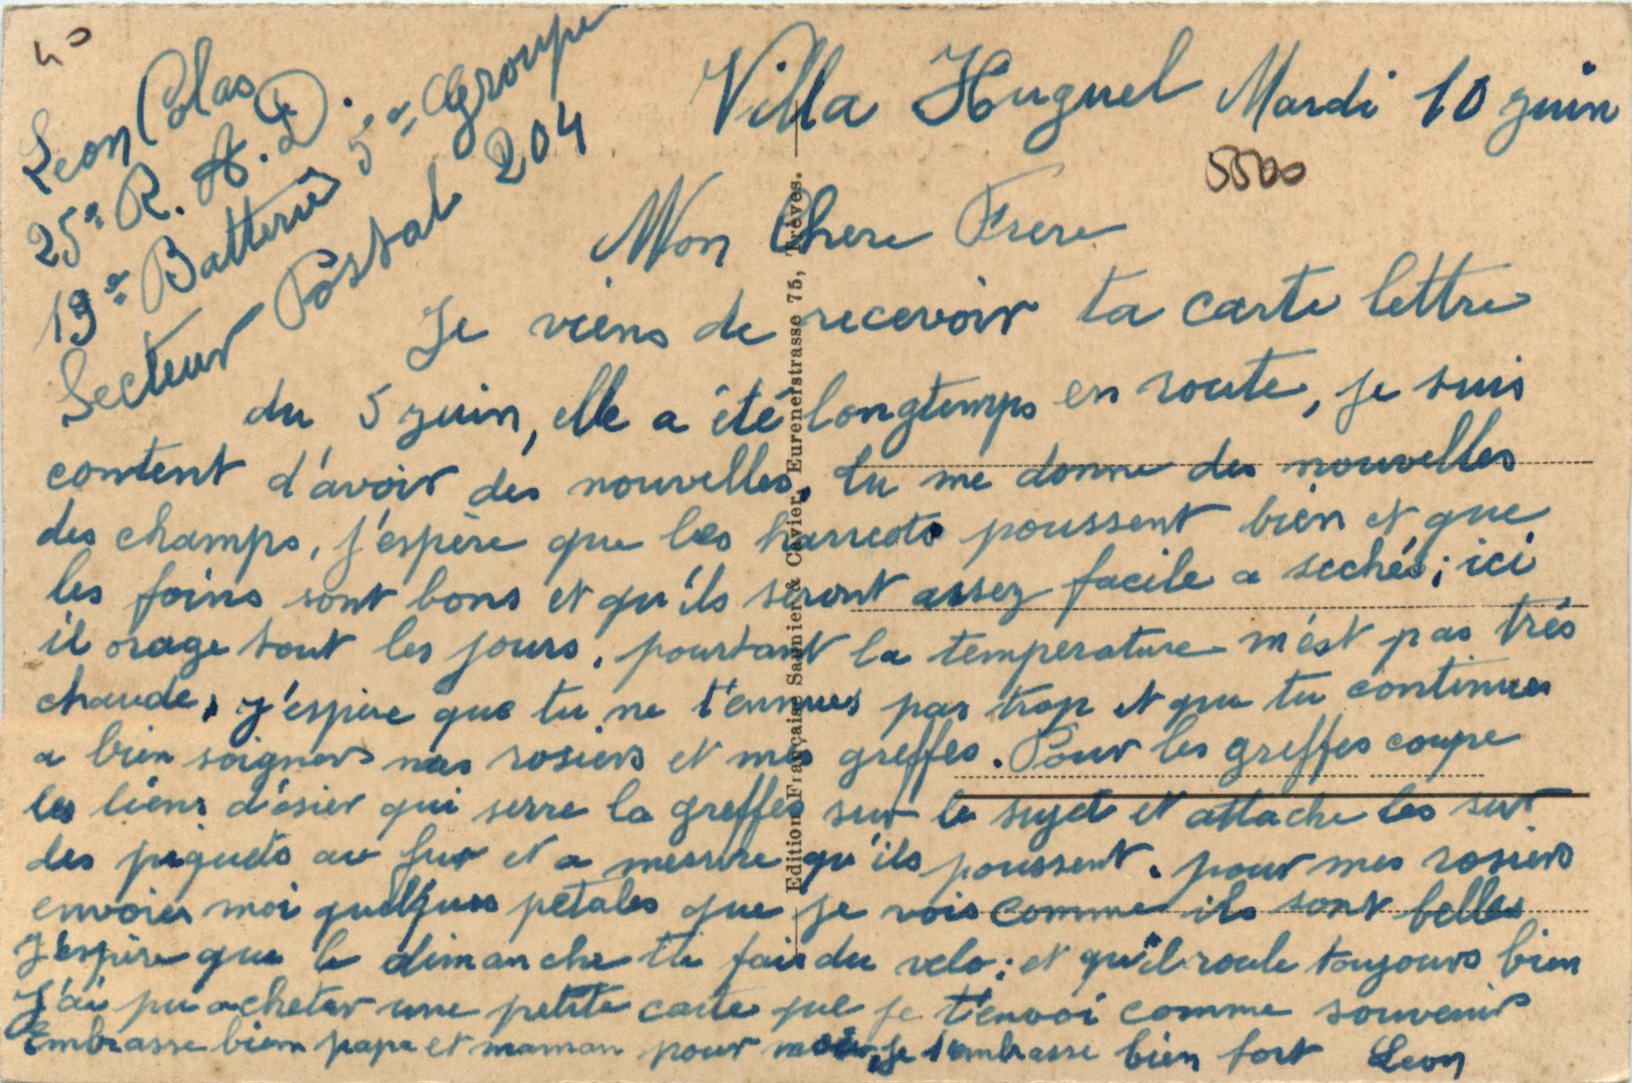 40
Leon Colas
25e R. A. D.
19e Batterie 5e Groupe
Secteur Postal 204
Villa Huguel Mardi 10 juin
5500
Mon Chere Frere
Je viens de recevoir ta carte lettre
du 5 juin, elle a été longtemps en route, je suis
content d'avoir des nouvelles, tu me donne des nouvelles
des champs, j'espère que les harricots poussent bien et que
les foins sont bons et qu'ils seront assez facile a sechés; ici
il orage tout les jours, pourtant la temperature n'est pas très
chaude, j'espère que tu ne t'ennues pas trop et que tu continues
a bien soigner mes rosiers et mes greffes. Pour les greffes coupe
les liens d'osier qui serre la greffes sur le sujet et attache les sur
des piquets au fur et a mesure qu'ils poussent. pour mes rosiers
envoies moi quelques petales que je vois comme ils sont belles
J'espère que le dimanche tu fais du velo; et qu'il roule toujours bien
J'ai pu acheter une petite carte que je t'envoi comme souvenir
Embrasse bien papa et maman pour moi, je t'embrasse bien fort Leon
Edition Française Saunier & Cavier, Eurenerstrasse 75, Trèves.